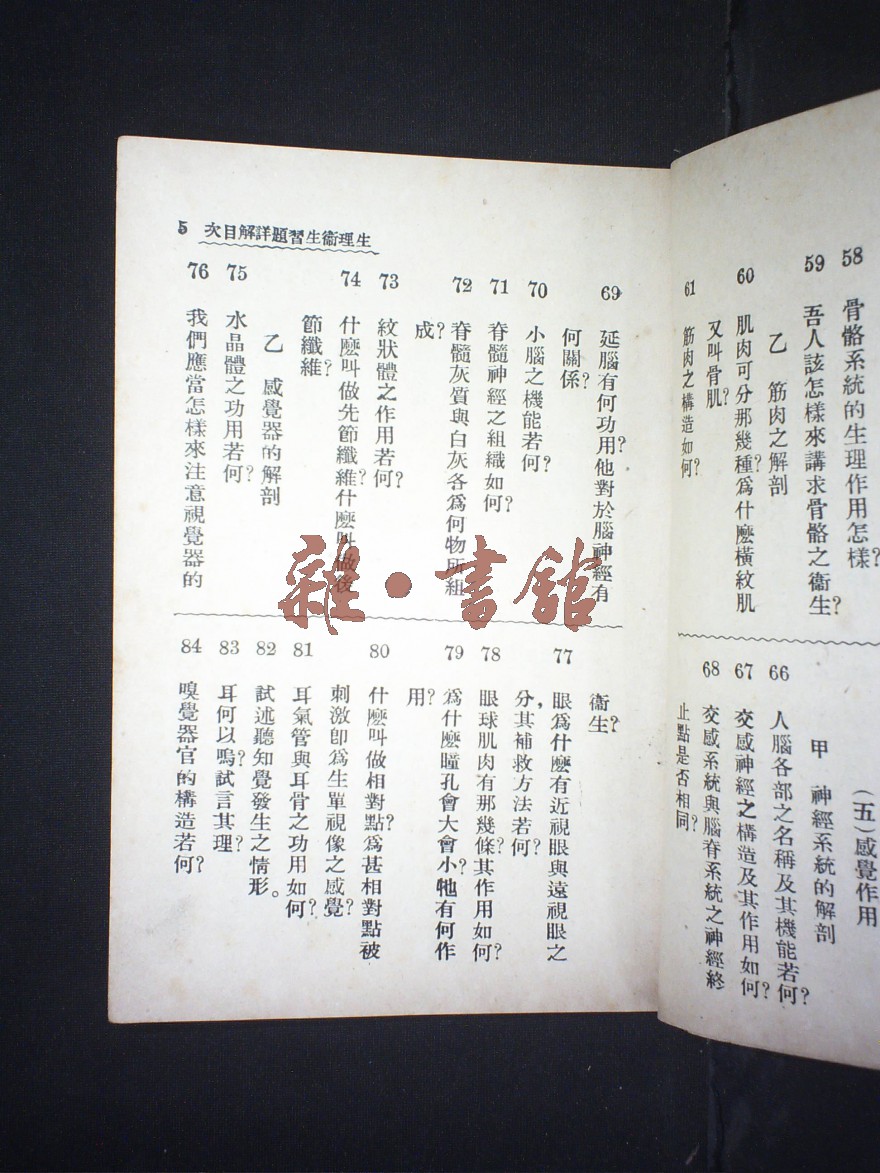 58 骨骼系統的生理作用怎樣?
59 吾人該怎樣來講求骨骼之衞生?
乙 筋肉之解剖
60 肌肉可分那幾種?爲什麽橫紋肌
又叫骨肌?
61 筋肉之構造如何?
(五)感覺作用
甲 神經系統的解剖
66 人腦各部之名稱及其機能若何?
67 交感神經之構造及其作用如何?
68 交感系統與腦脊系統之神經終
止點是否相同?
生理衞生習題詳解目次 5
69 延腦有何功用?他對於腦神經有
何關係?
70 小腦之機能若何?
71 脊髓神經之組織如何?
72 脊髓灰質與白灰各爲何物所組
成?
73 紋狀體之作用若何?
74 什麽叫做先節纖維?什麽叫做後
節纖維?
乙 感覺器的解剖
75 水晶體之功用若何?
76 我們應當怎樣來注意視覺器的
衞生?
77 眼爲什麽有近視眼與遠視眼之
分,其補救方法若何?
78 眼球肌肉有那幾條?其作用如何?
79 爲什麽瞳孔會大會小?牠有何作
用?
80 什麽叫做相對點?爲甚相對點被
刺激卽爲生單視像之感覺?
81 耳氣管與耳骨之功用如何?
82 試述聽知覺發生之情形。
83 耳何以鳴?試言其理?
84 嗅覺器官的構造若何?
雜·書館